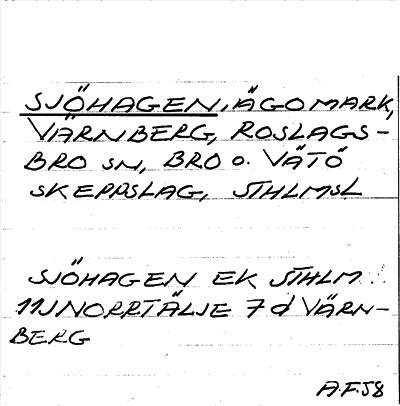 SJÖHAGEN, ÄGOMARK,
VÄRNBERG, ROSLAGS-
BRO SN, BRO o. VÄTÖ
SKEPPSLAG, STHLMSL
SJÖHAGEN EK STHLM
11J NORRTÄLJE 7d VÄRN-
BERG
A.F. 58